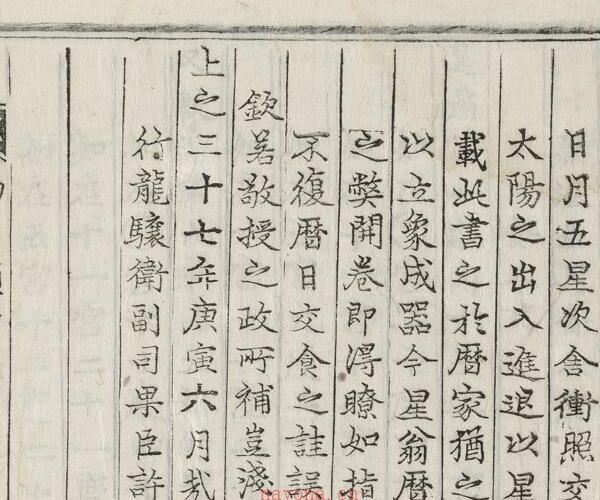 日月五星次舍衝照交
太陽之出入進退以星
載此書之於曆家猶之
以立象成器今星翁曆
之弊開卷即淂瞭如指
不復曆日交食之註誤
欽若敬授之政所補豈淺
上之三十七年庚寅六月哉
行龍驤衛副司果臣許